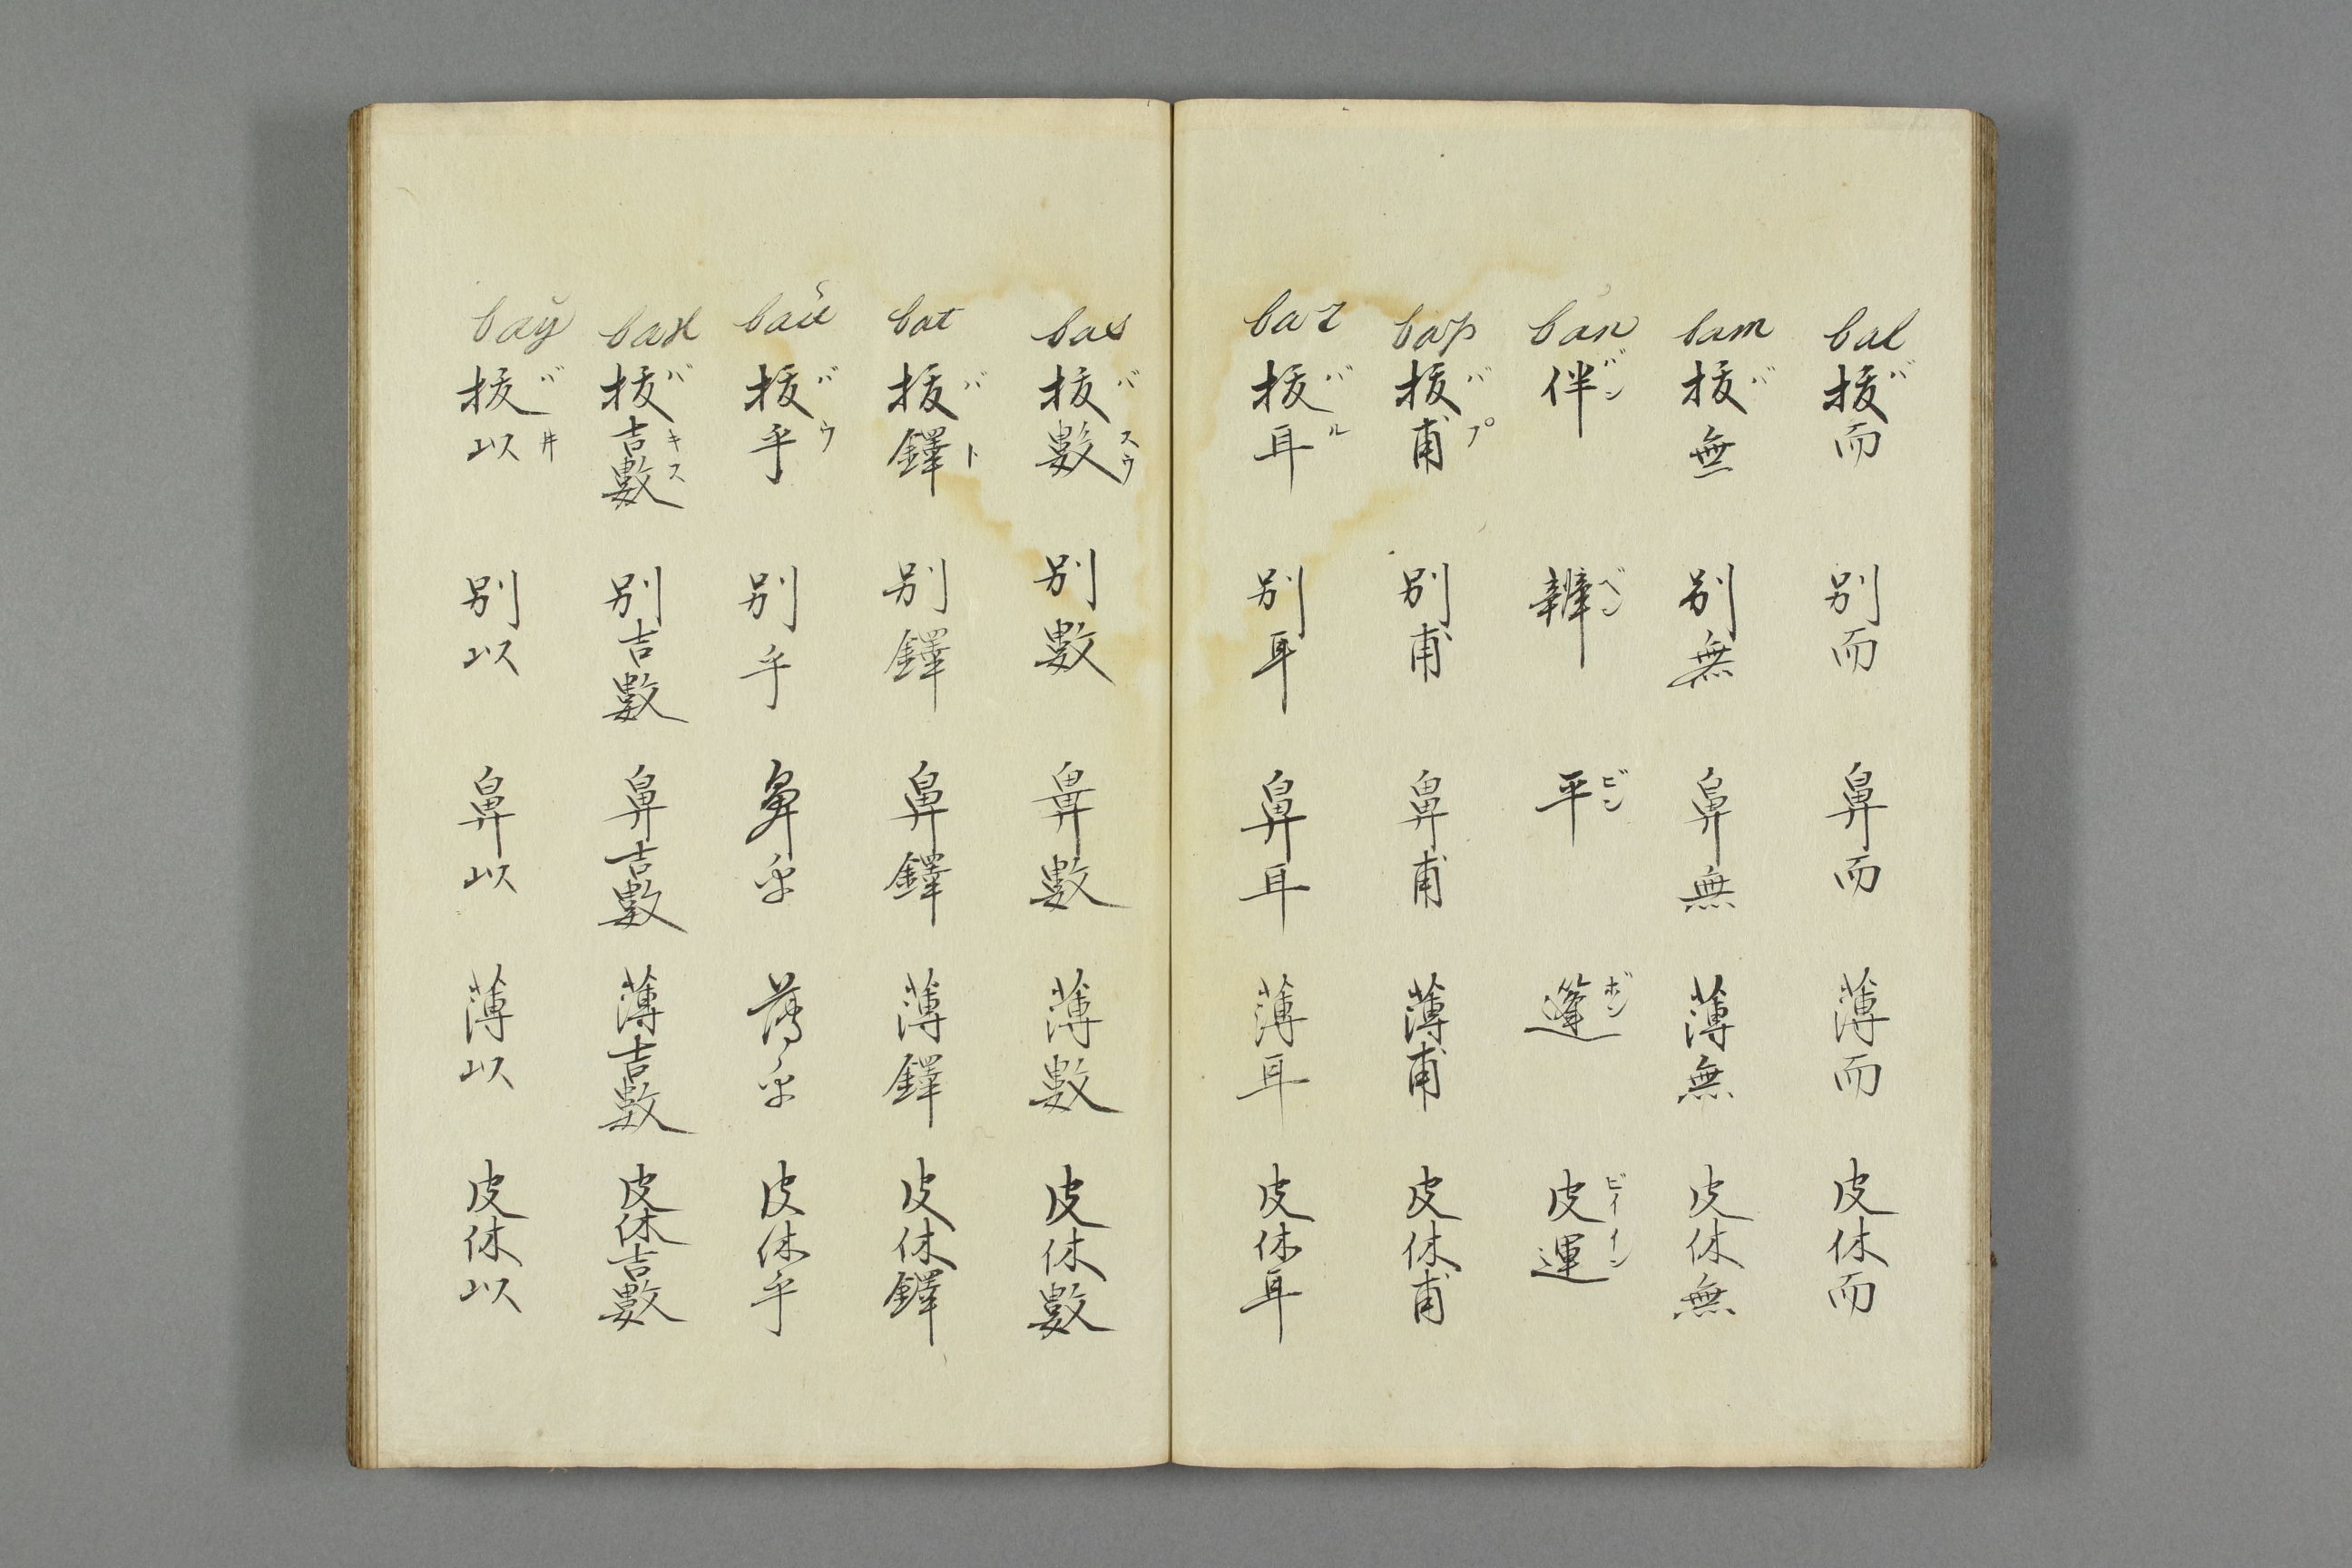 bal 拔バ而 別而 鼻而 薄而 皮休而
bam 拔バ無 別無 鼻無 薄無 皮休無
ban 伴バン 辨ベン 平ビン 蓬ボン 皮運ビイイン
bap 拔バ甫プ 別甫 鼻甫 薄甫 皮休甫
bar 拔バ耳ル 別耳 鼻耳 薄耳 皮休耳
bas 拔バ數スウ 別數 鼻數 薄數 皮休數
bat 拔バ鐸ト 別鐸 鼻鐸 薄鐸 皮休鐸
baŭ 拔バ乎ウ 別乎 鼻乎 薄乎 皮休乎
bax 拔バ吉キ數ス 別吉數 鼻吉數 薄吉數 皮休吉數
baÿ 拔バ以井 別以 鼻以 薄以 皮休以